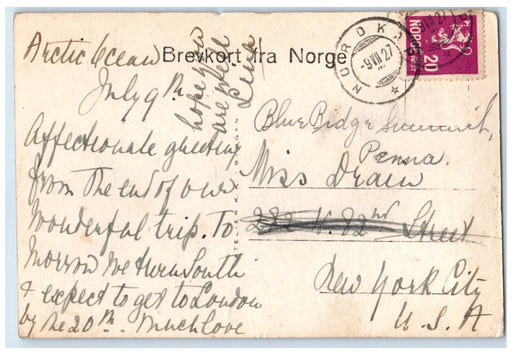 Brevkort fra Norge
Arctic Ocean
July 9th
Affectionate greeting
from the end of our
wonderful trip. To
morrow we turn South
& expect to get to London
by the 20th. Much love
hope you
are well
NORDKAP
9 VII 27
NORGE
20
Blue Ridge Summit,
Penna.
Miss Drain
232 W. 82nd Street
New York City
U.S.A